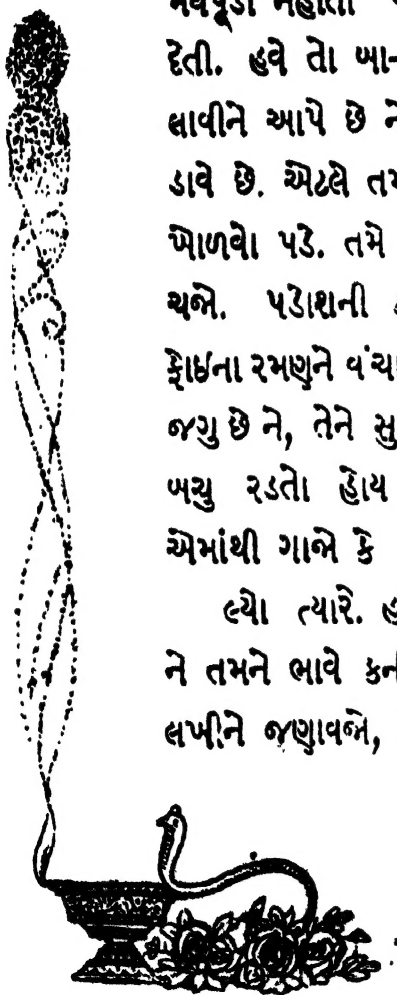 દેતી. હવે તો બા-
લાવીને આપે છે ને
ડાવે છે. એટલે તમ
ખોળવો પડે. તમે
ચજો. પડોશની
ફોઇના રમણને વંચા
જગુ છે ને, તેને સુ
બચુ રડતો હોય
એમાંથી ગાજો કે
લ્યો ત્યારે. હ
ને તમને ભાવે કની
લખીને જણાવજો,